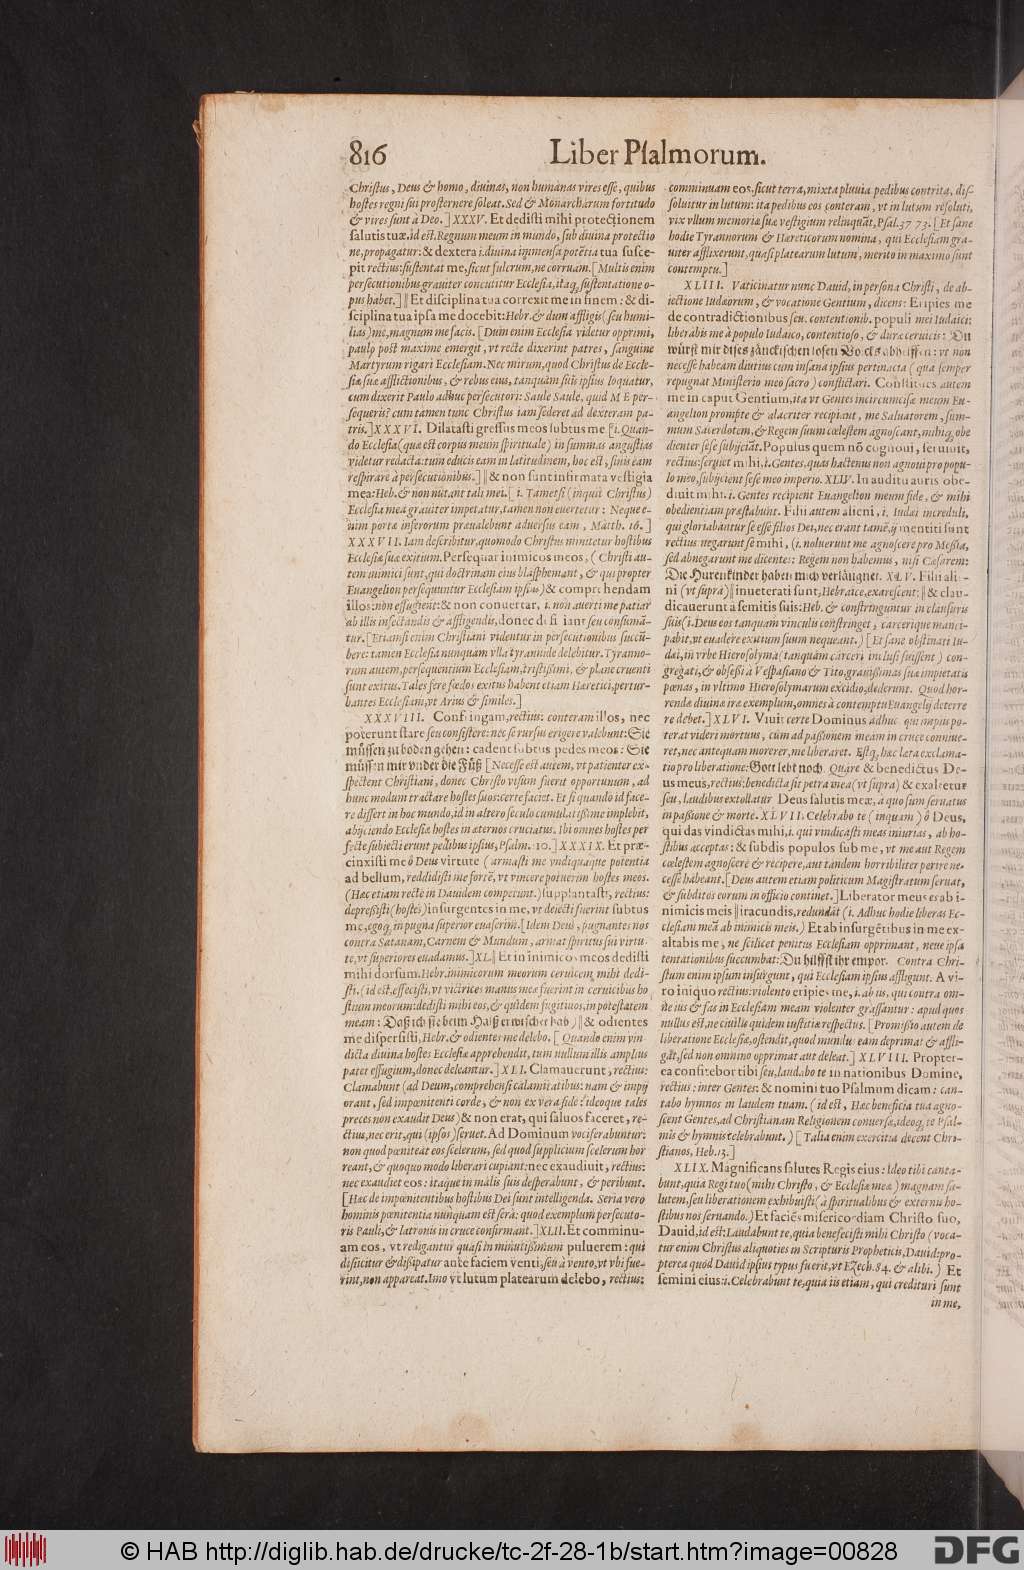 816
Liber Psalmorum.
Christus, Deus & homo, diuinas, non humanas vires esse, quibus
hostes regni sui prosternere soleat. Sed & Monarcharum fortitudo
& vires sunt à Deo. ] XXXV. Et dedisti mihi protectionem
salutis tuæ. id est. Regnum meum in mundo, sub diuina protectio
ne, propagatur: & dextera i. diuina immensa potẽtia tua susce-
pit rectius: sustentat me, sicut fulcrum, ne corruam. [ Multis enim
persecutionibus grauiter concutitur Ecclesia, itaq; sustentatione o-
pus habet. ] || Et disciplina tua correxit me in finem: & di-
sciplina tua ipsa me docebit: Hebr. & dum affligis (seu humi-
lias) me, magnum me facis. [ Dum enim Ecclesia videtur opprimi,
paulò pòst maxime emergit, vt recte dixerint patres, sanguine
Martyrum rigari Ecclesiam. Nec mirum, quod Christus de Eccle-
siæ suæ afflictionibus, & rebus eius, tanquàm suis ipsius loquatur,
cum dixerit Paulo adhuc persecutori: Saule Saule, quid M E per-
sequeris? cum tamen tunc Christus iam sederet ad dexteram pa-
tris. ] XXXVI. Dilatasti gressus meos subtus me [ i. Quan-
do Ecclesia (quæ est corpus meum spirituale) in summas angustias
videtur redacta: tum educis eam in latitudinem, hoc est, sinis eam
respirare à persecutionibus. ] || & non sunt infirmata vestigia
mea: Heb. & non nutant tali mei. [ i. Tametsi (inquit Christus)
Ecclesia mea grauiter impetatur, tamen non euertetur: Neque e-
nim portæ inferorum præualebunt aduersus eam, Matth. 16. ]
XXXVII. Iam describitur, quomodo Christus minitetur hostibus
Ecclesiæ suæ exitium. Persequar inimicos meos, ( Christi au-
tem inimici sunt, qui doctrinam eius blasphemant, & qui propter
Euangelion persequuntur Ecclesiam ipsius) & comprehendam
illos: non effugient: & non conuertar, i. non auerti me patiar
ab illis insectandis & affligendis, donec deficiant seu consumã-
tur. [ Etiamsi enim Christiani videntur in persecutionibus succũ-
bere: tamen Ecclesia nunquàm vlla tyrannide delebitur. Tyranno-
rum autem, persequentium Ecclesiam, tristissimi, & planè cruenti
sunt exitus. Tales ferè fœdos exitus habent etiam Hæretici, pertur-
bantes Ecclesiam, vt Arius & similes. ]
XXXVIII. Confringam, rectius: conteram illos, nec
poterunt stare seu consistere: nec se rursus erigere valebunt: Sie
müssen zu boden gehen: cadent subtus pedes meos: Sie
müssen mir vnder die Füß [ Necesse est autem, vt patienter ex-
spectent Christiani, donec Christo visum fuerit opportunum, ad
hunc modum tractare hostes suos: certe faciet. Et si quando id face-
re differt in hoc mundo, id in altero seculo cumulatissimè implebit,
abijciendo Ecclesiæ hostes in æternos cruciatus. Ibi omnes hostes per
fecte subiecti erunt pedibus ipsius, Psalm. 110. ] XXXIX. Et præ-
cinxisti me ô Deus virtute ( armasti me vndiquaque potentia
ad bellum, reddidisti me fortẽ, vt vincere potuerim hostes meos.
(Hæc etiam rectè in Dauidem competunt.) supplantasti, rectius:
depressisti (hostes) insurgentes in me, vt deiecti fuerint subtus
me, egoq; in pugna superior euaserim. [ Idem Deus, pugnantes nos
contra Satanam, Carnem & Mundum, armat spiritus sui virtu-
te, vt superiores euadamus. ] XL. || Et inimicos meos dedisti
mihi dorsum. Hebr. inimicorum meorum ceruicem mihi dedi-
sti. (id est, effecisti, vt victrices manus meæ fuerint in ceruicibus ho
stium meorum: dedisti mihi eos, & quidem fugitiuos, in potestatem
meam: Daß ich sie beim Halß erwischet hab) || & odientes
me dispersisti, Hebr. & odientes me delebo. [ Quando enim vin-
dicta diuina hostes Ecclesiæ apprehendit, tum nullum illis amplius
patet effugium, donec deleantur. ] XLI. Clamauerunt, rectius:
Clamabunt (ad Deum, comprehensi calamitatibus: nam & impij
orant, sed impœnitenti corde, & non ex vera fide: ideoque tales
preces non exaudit Deus) & non erat, qui saluos faceret, re-
ctius, nec erit, qui (ipsos) seruet. Ad Dominum vociferabuntur:
non quod pœniteat eos scelerum, sed quod supplicium scelerum hor
reant, & quoquo modo liberari cupiant: nec exaudiuit, rectius:
nec exaudiet eos: itaque in malis suis desperabunt, & peribunt.
[ Hæc de impœnitentibus hostibus Dei sunt intelligenda. Seria vero
hominis pœnitentia nunquam est sera: quod exemplum persecuto-
ris Pauli, & latronis in cruce confirmant. ] XLII. Et comminu-
am eos, vt redigantur quasi in minutissimum puluerem: qui
disijcitur & dissipatur ante faciem venti, seu à vento, vt vbi fue-
rint, non appareat. Imo vt lutum platearum delebo, rectius:
comminuam eos, sicut terra, mixta pluuia pedibus contrita, dis-
soluitur in lutum: ita pedibus eos conteram, vt in lutum resoluti,
vix vllum memoriæ suæ vestigium relinquãt, Psal. 37 73. [ Et sane
hodie Tyrannorum & Hæreticorum nomina, qui Ecclesiam gra-
uiter afflixerunt, quasi platearum lutum, merito in maximo sunt
contemptu. ]
XLIII. Vaticinatur nunc Dauid, in persona Christi, de ab-
iectione Iudæorum, & vocatione Gentium, dicens: Eripies me
de contradictionibus seu. contentionib. populi mei Iudaici:
liberabis me à populo Iudaico, contentioso, & duræ ceruicis: Du
würst mir dises zänckischen losen Bocks abhelffen: vt non
necesse habeam diutius cum insana ipsius pertinacia ( quæ semper
repugnat Ministerio meo sacro ) conflictari. Constitues autem
me in caput Gentium, ita vt Gentes incircumcisæ meum Eu-
angelion promptè & alacriter recipiant, me Saluatorem, sum-
mum Sacerdotem, & Regem suum cœlestem agnoscant, mihiq; obe
dienter sese subijciãt. Populus quem nõ cognoui, seruiuit,
rectius: seruiet mihi, i. Gentes, quas hactenus non agnoui pro popu-
lo meo, subijcient sese meo imperio. XLIV. In auditu auris obe-
diuit mihi. i. Gentes recipient Euangelion meum fide, & mihi
obedientiam præstabunt. Filii autem alieni, i. Iudæi increduli,
qui gloriabantur se esse filios Dei, nec erant tamẽ, ij mentiti sunt
rectius: negarunt se mihi, (i. noluerunt me agnoscere pro Messia,
sed abnegarunt me dicentes: Regem non habemus, nisi Cæsarem:
Die Hurenkinder haben mich verläugnet. XLV. Filii alie-
ni (vt supra) || inueterati sunt, Hebraicè, exarescent: || & clau-
dicauerunt à semitis suis: Heb. & constringuntur in clausuris
suis (i. Deus eos tanquam vinculis constringet, carcerique manci-
pabit, vt euadere exitium suum nequeant. ) [ Et sane obstinati Iu-
dæi, in vrbe Hierosolyma (tanquàm carceri inclusi fuissent ) con-
gregati, & obsessi à Vespasiano & Tito, grauissimas suæ impietatis
pœnas, in vltimo Hierosolymarum excidio, dederunt. Quod hor-
rendæ diuinæ iræ exemplum, omnes à contemptu Euangelij deterre
re debet. ] XLVI. Viuit certe Dominus adhuc qui impijs po-
terat videri mortuus, cùm ad passionem meam in cruce conniue-
ret, nec antequam morerer, me liberaret. Estq; hæc læta exclama-
tio pro liberatione: Gott lebt noch. Quare & benedictus De-
us meus, rectius: benedicta sit petra mea (vt supra) & exaltetur
seu, laudibus extollatur Deus salutis meæ, a quo sum seruatus
in passione & morte. XLVII. Celebrabo te ( inquam ) ô Deus,
qui das vindictas mihi, i. qui vindicasti meas iniurias, ab ho-
stibus acceptas: & subdis populos sub me, vt me aut Regem
cœlestem agnoscere & recipere, aut tandem horribiliter perire ne-
cesse habeant. [ Deus autem etiam politicum Magistratum seruat,
& subditos eorum in officio continet. ] Liberator meus es ab i-
nimicis meis || iracundis, redundãt (i. Adhuc hodie liberas Ec-
clesiam meã ab inimicis meis. ) Et ab insurgẽtibus in me ex-
altabis me, ne scilicet penitus Ecclesiam opprimant, neue ipsa
tentationibus succumbat: Du hilffst ihr empor. Contra Chri-
stum enim ipsum insurgunt, qui Ecclesiam ipsius affligunt. A vi-
ro iniquo rectius: violento eripies me, i. ab ijs, qui contra om-
ne ius & fas in Ecclesiam meam violenter grassantur: apud quos
nullus est, ne ciuilis quidem iustitiæ respectus. [ Promissio autem de
liberatione Ecclesiæ, ostendit, quod mundus eam deprimat & affli-
gat, sed non omnino opprimat aut deleat. ] XLVIII. Propter-
ea confitebor tibi seu, laudabo te in nationibus Domine,
rectius: inter Gentes: & nomini tuo Psalmum dicam: can-
tabo hymnos in laudem tuam. ( id est, Hæc beneficia tua agno-
scent Gentes, ad Christianam Religionem conuersæ, ideoq; te Psal-
mis & hymnis celebrabunt. ) [ Talia enim exercitia decent Chri-
stianos, Heb. 13. ]
XLIX. Magnificans salutes Regis eius: Ideo tibi canta-
bunt, quia Regi tuo (mihi Christo, & Ecclesiæ meæ ) magnam sa-
lutem, seu liberationem exhibuisti (à spiritualibus & externis ho-
stibus nos seruando.) Et faciẽs misericordiam Christo suo,
Dauid, id est: Laudabunt te, quia benefecisti mihi Christo (voca-
tur enim Christus aliquoties in Scripturis Propheticis, Dauid: pro-
pterea quod Dauid ipsius typus fuerit, vt Ezech. 84. & alibi. ) Et
semini eius: i. Celebrabunt te, quia iis etiam, qui credituri sunt
in me,
© HAB http://diglib.hab.de/drucke/tc-2f-28-1b/start.htm?image=00828
DFG